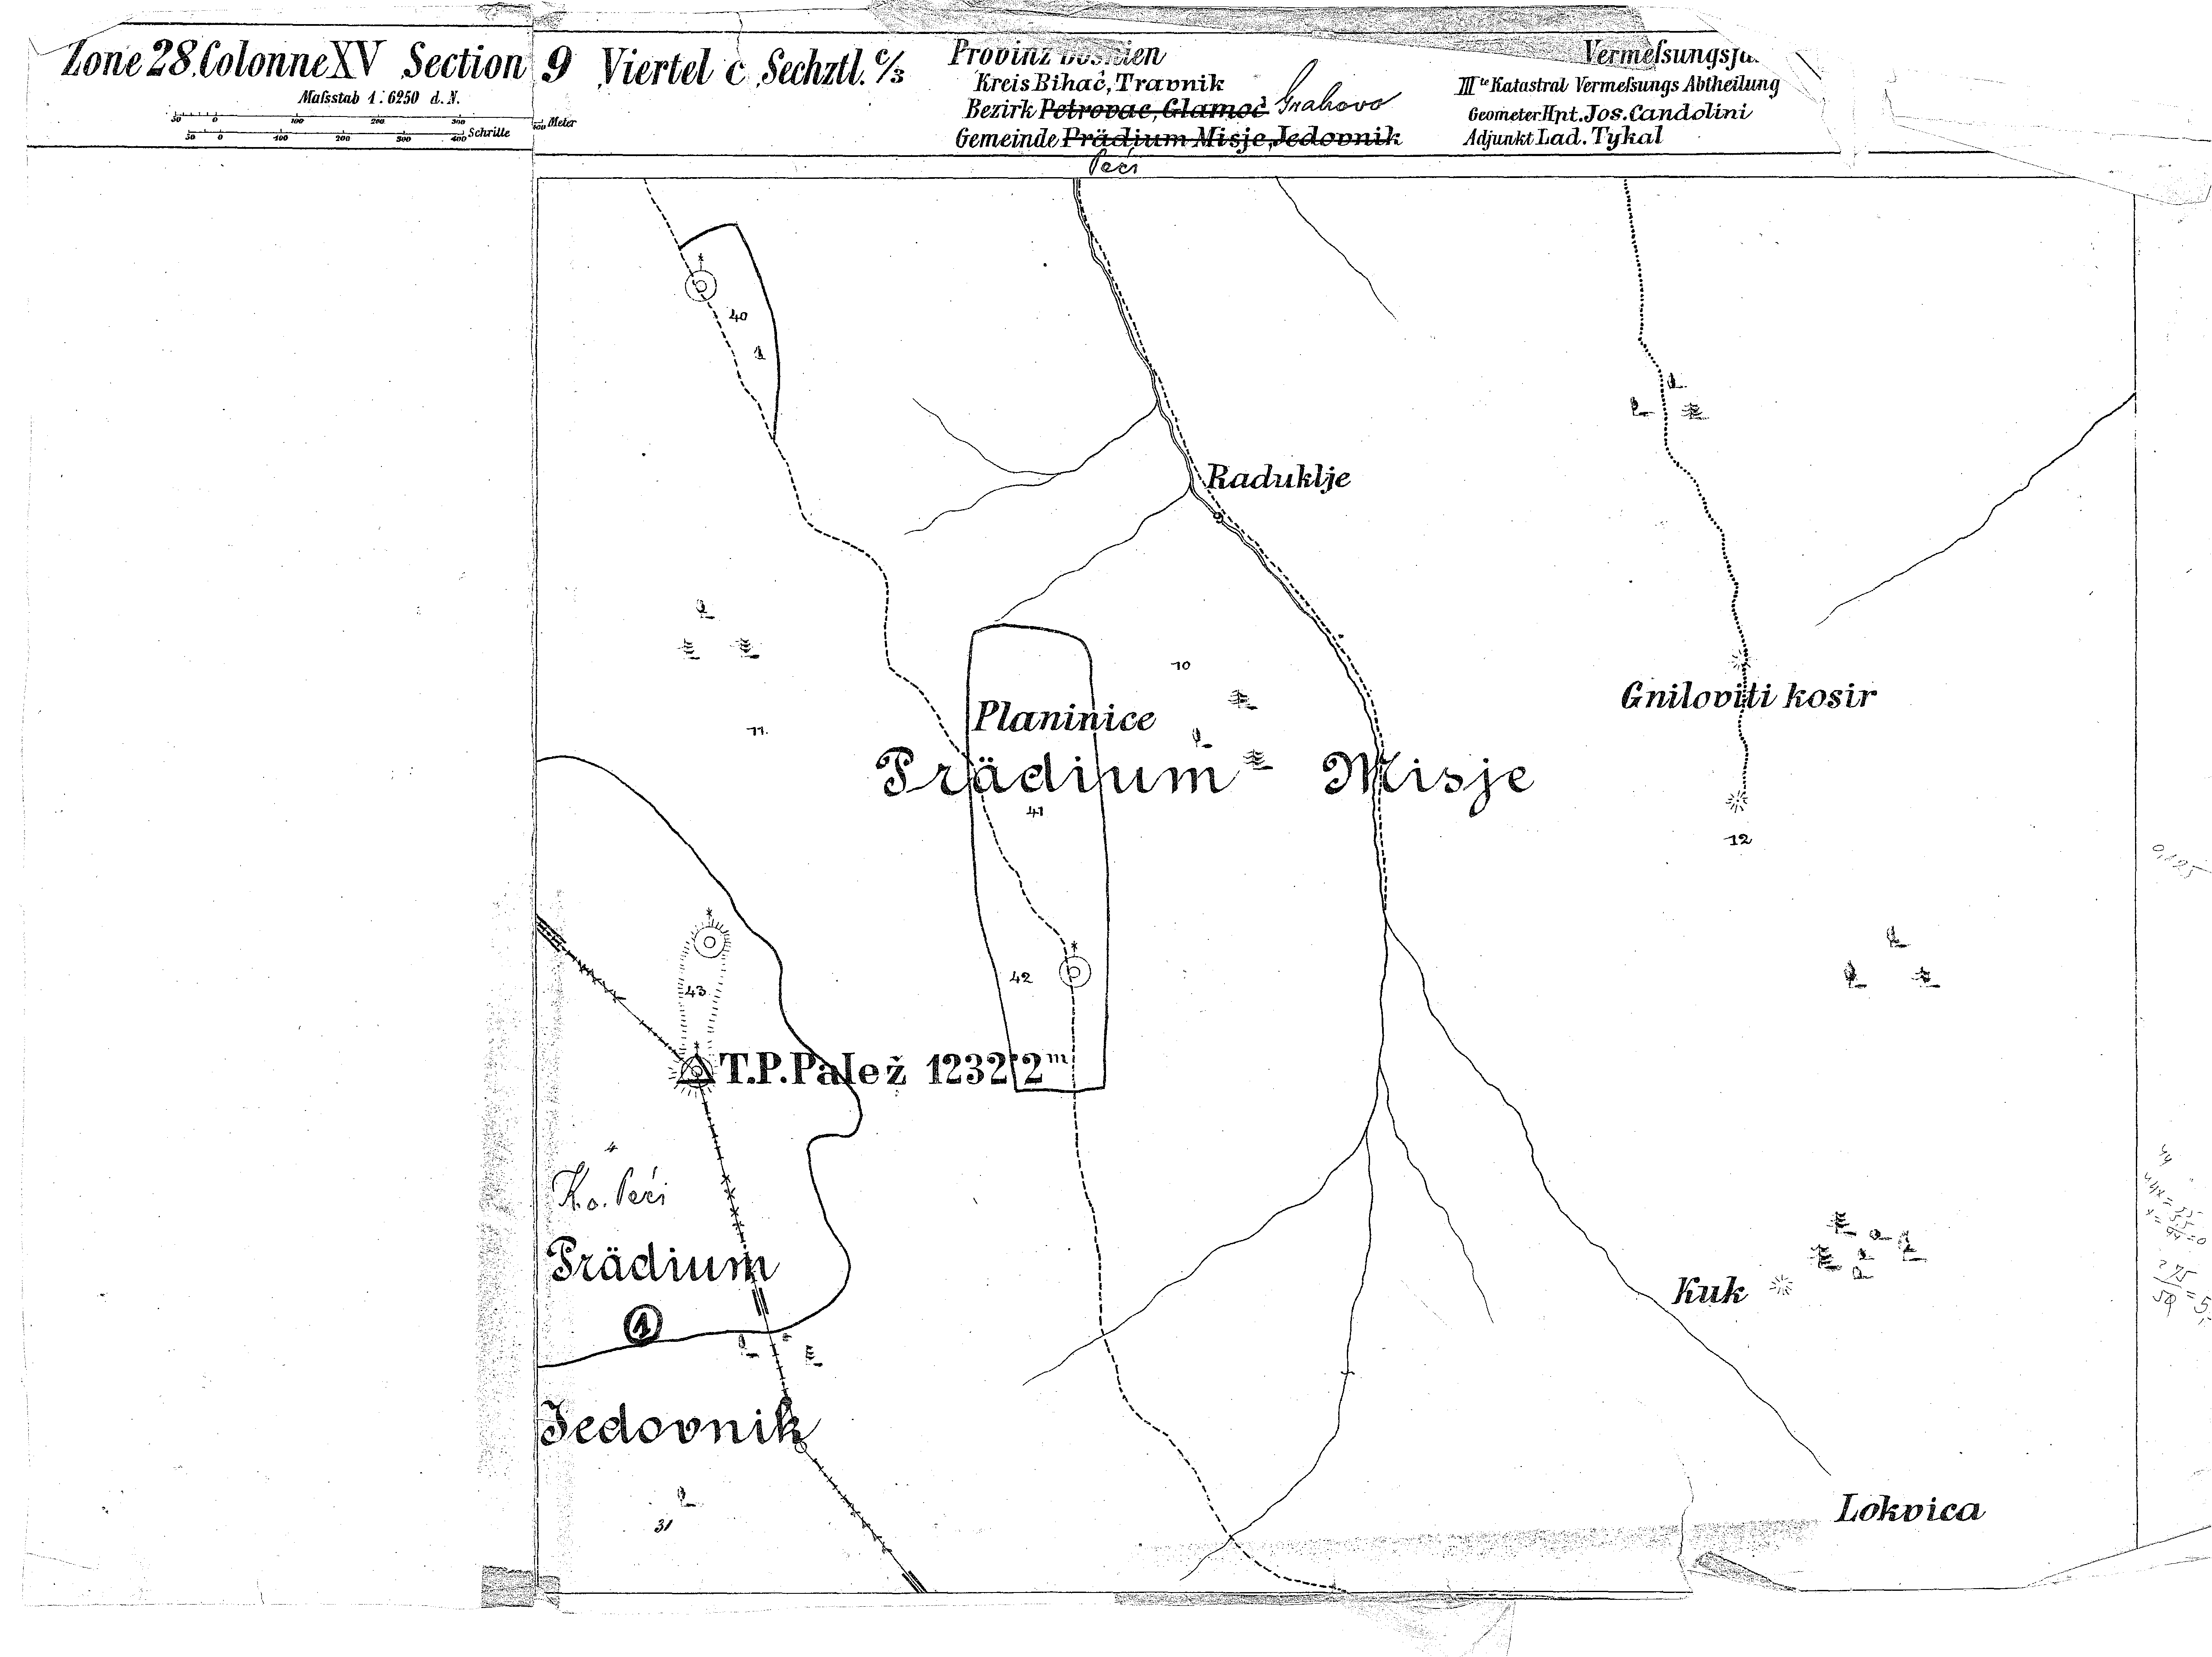 Zone 28. Colonne XV Section 9 Viertel c Sechztl. c/3
Maſsstab 1:6250 d. N.
50 0 100 200 300 400 Meter
50 0 100 200 300 400 Schritte
Provinz Bosnien
Kreis Bihać, Travnik
Bezirk Petrovac, Glamoč Grahovo
Gemeinde Prädium Misje, Jedovnik
Peći
IIIte Katastral Vermeſsungs Abtheilung
Geometer Hpt. Jos. Candolini
Adjunkt Lad. Tykal
40
1
Raduklje
10
Planinice
Gniloviti kosir
11.
Prädium Misje
41
12
0,125
42
43
T.P. Palež 1232·2m
4
K.o. Peći
44
Prädium
Kuk
1
Jedovnik
Lokvica
31